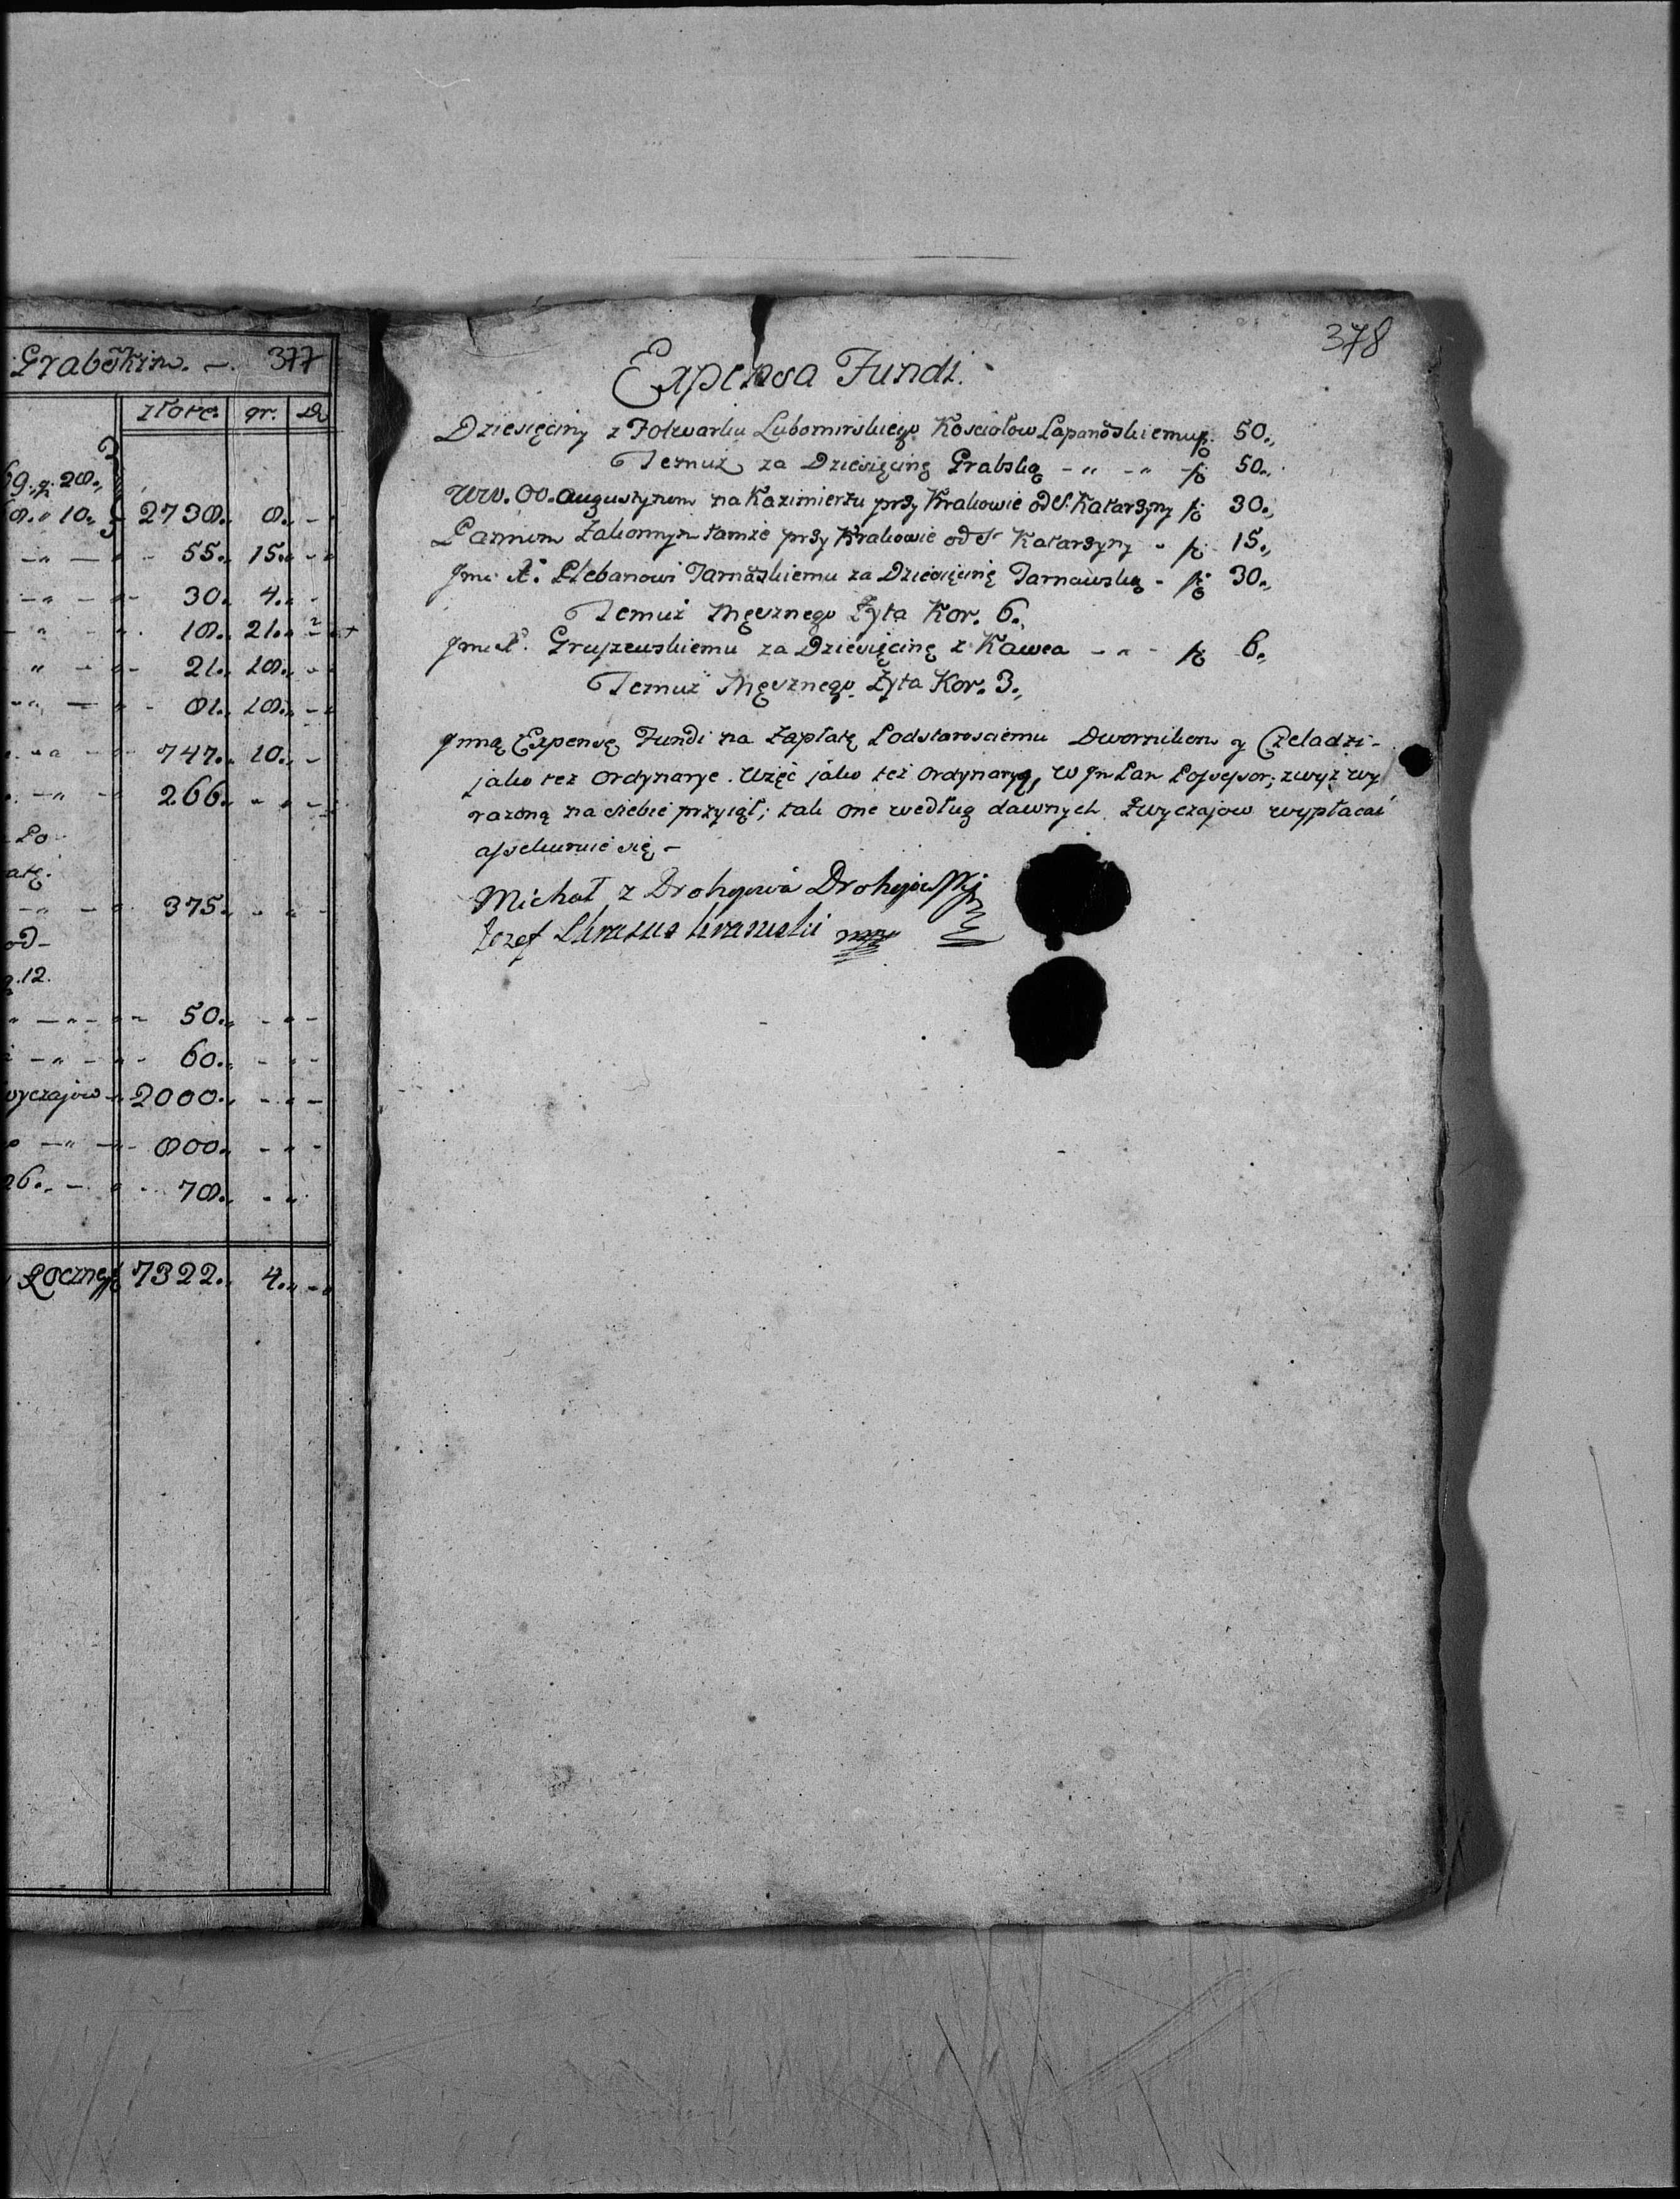 Grabskim. — 377
złote. gr. D
69. g. 28.
8. " 10. 2738. 8. -
55. 15. -
30. 4. -
18. 21. 2
21. 18. -
81. 18. -
747. 10. -
266. - -
Po
atę.
375. - -
od-
g. 12.
50. - -
60. - -
wyczajów 2000. - -
800. - -
26. - 78. - -
Roczney 7322. 4. -
378
Expensa Fundi.
Dziesięciny z Folwarku Lubomirskiego Kosciołow Łapanoskiemu f. 50.
Temuż za Dziesięcinę Grabską - " - " - f 50.
WW. OO. Augustynom na Kazimierzu przy Krakowie od S. Katarzyny f 30.
Pannom Zakonnym tamże przy Krakowie od St Katarzyny - f 15.
Jmci X. Plebanowi Tarnaskiemu za Dziesięcinę Tarnawską - f 30.
Temuż Mesznego Żyta Kor. 6.
Jmci X. Gruszewskiemu za Dziesięcinę z Kawca - " - f 6.
Temuż Mesznego Żyta Kor. 3.
Inną Expensę Fundi na Zapłatę Podstarosciemu Dwornikom y Czeladzi-
jako też Ordynarye. Wzęć jako też Ordynaryą, W Jm Pan Possessor, zwyż wy
razoną na siebie przyiął; tak one według dawnych Zwyczajow wypłacać
assekuruie się -
Michał z Drohojowa Drohojowski
Jozef